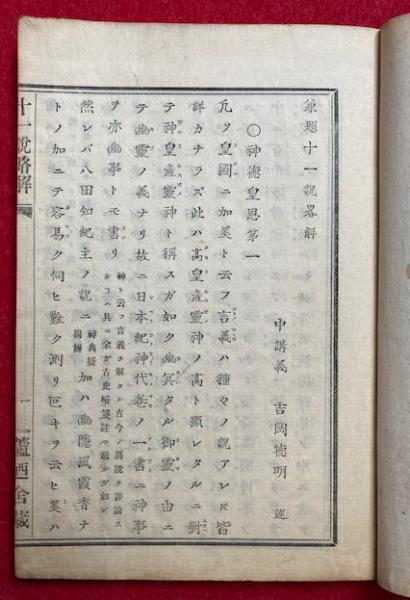 兼題十一説畧解
中講義 吉岡德明 述
○神德皇恩第一
凡ソ皇國ニ加美ト云フ言義ハ種々ノ説アレ𪜈皆
詳カナラズ此ハ高皇産靈神ノ高ト顯レタルニ對
テ神皇産靈神ト稱スガ如ク幽冥タル御靈ノ由ニ
テ幽靈ノ義ナリ故ニ日本紀神代卷ノ一書ニ神事
ヲ亦幽事トモ書リ
神ト云フ言義ヲ解タル古今ノ異説ヲ評論ス
ルコハ具ニ余ガ古史略 註ニ載ルガ如シ
然レバ八田知紀主ノ説ニ 神典疑問辨 加ハ幽隱風霞香ナ
トノ加ニテ容易ク伺ヒ難ク測リ叵キヲ云ヒ美ハ
十一説略解
一
舍藏